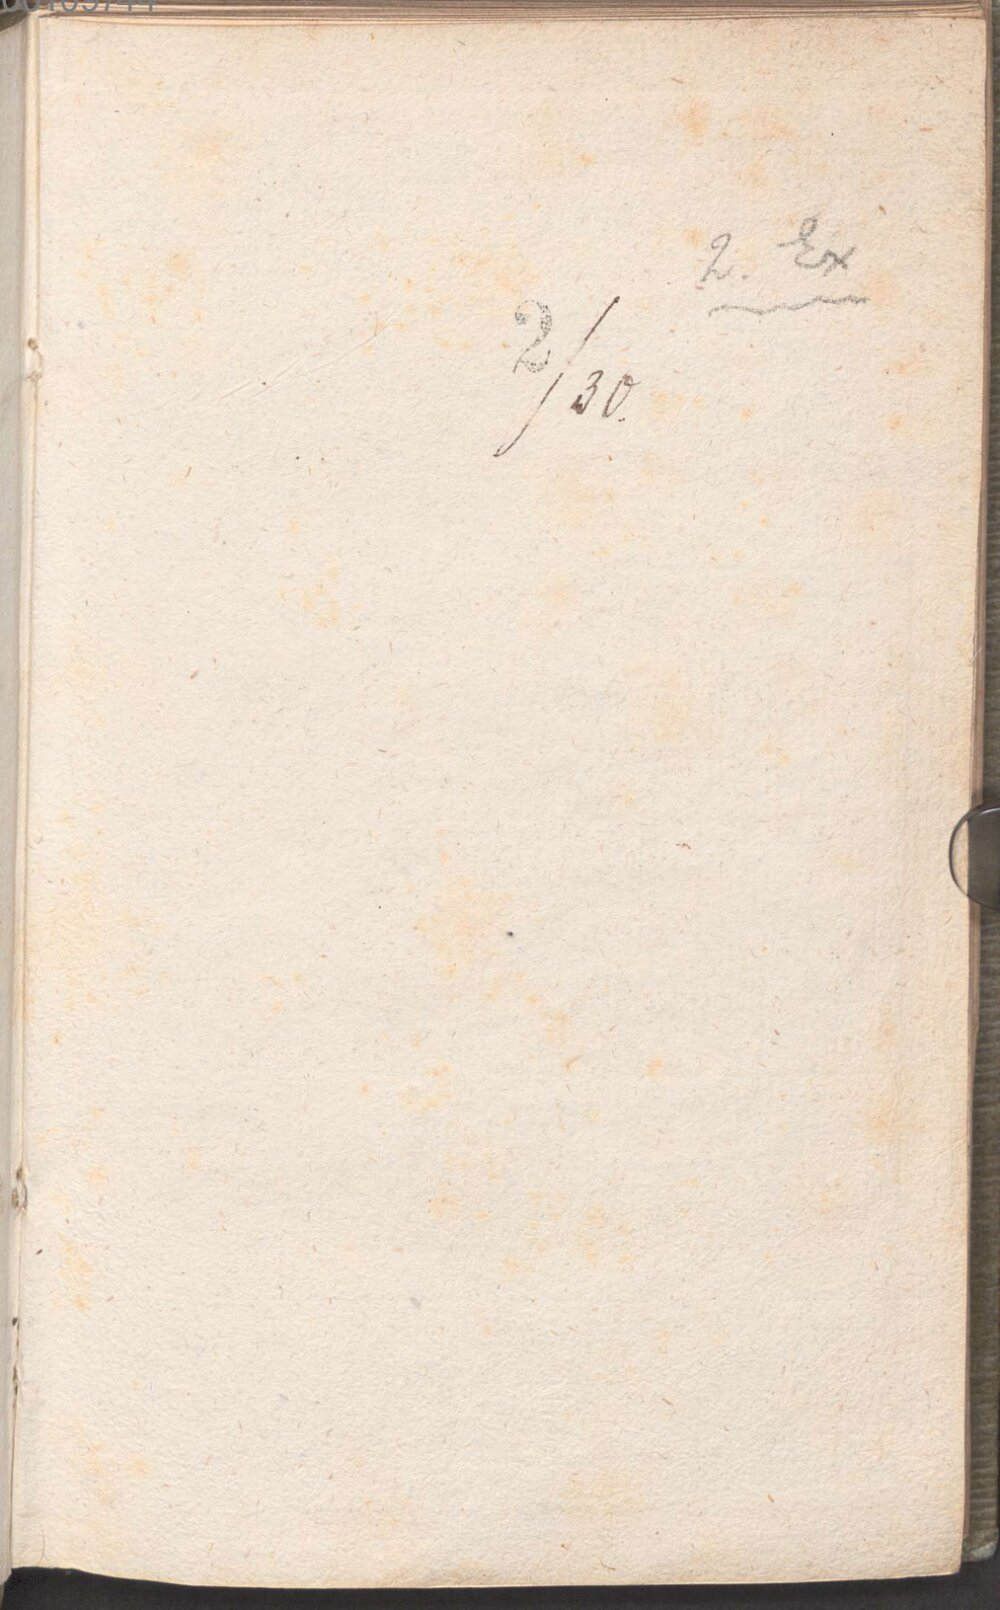 2. Ex
2/30.